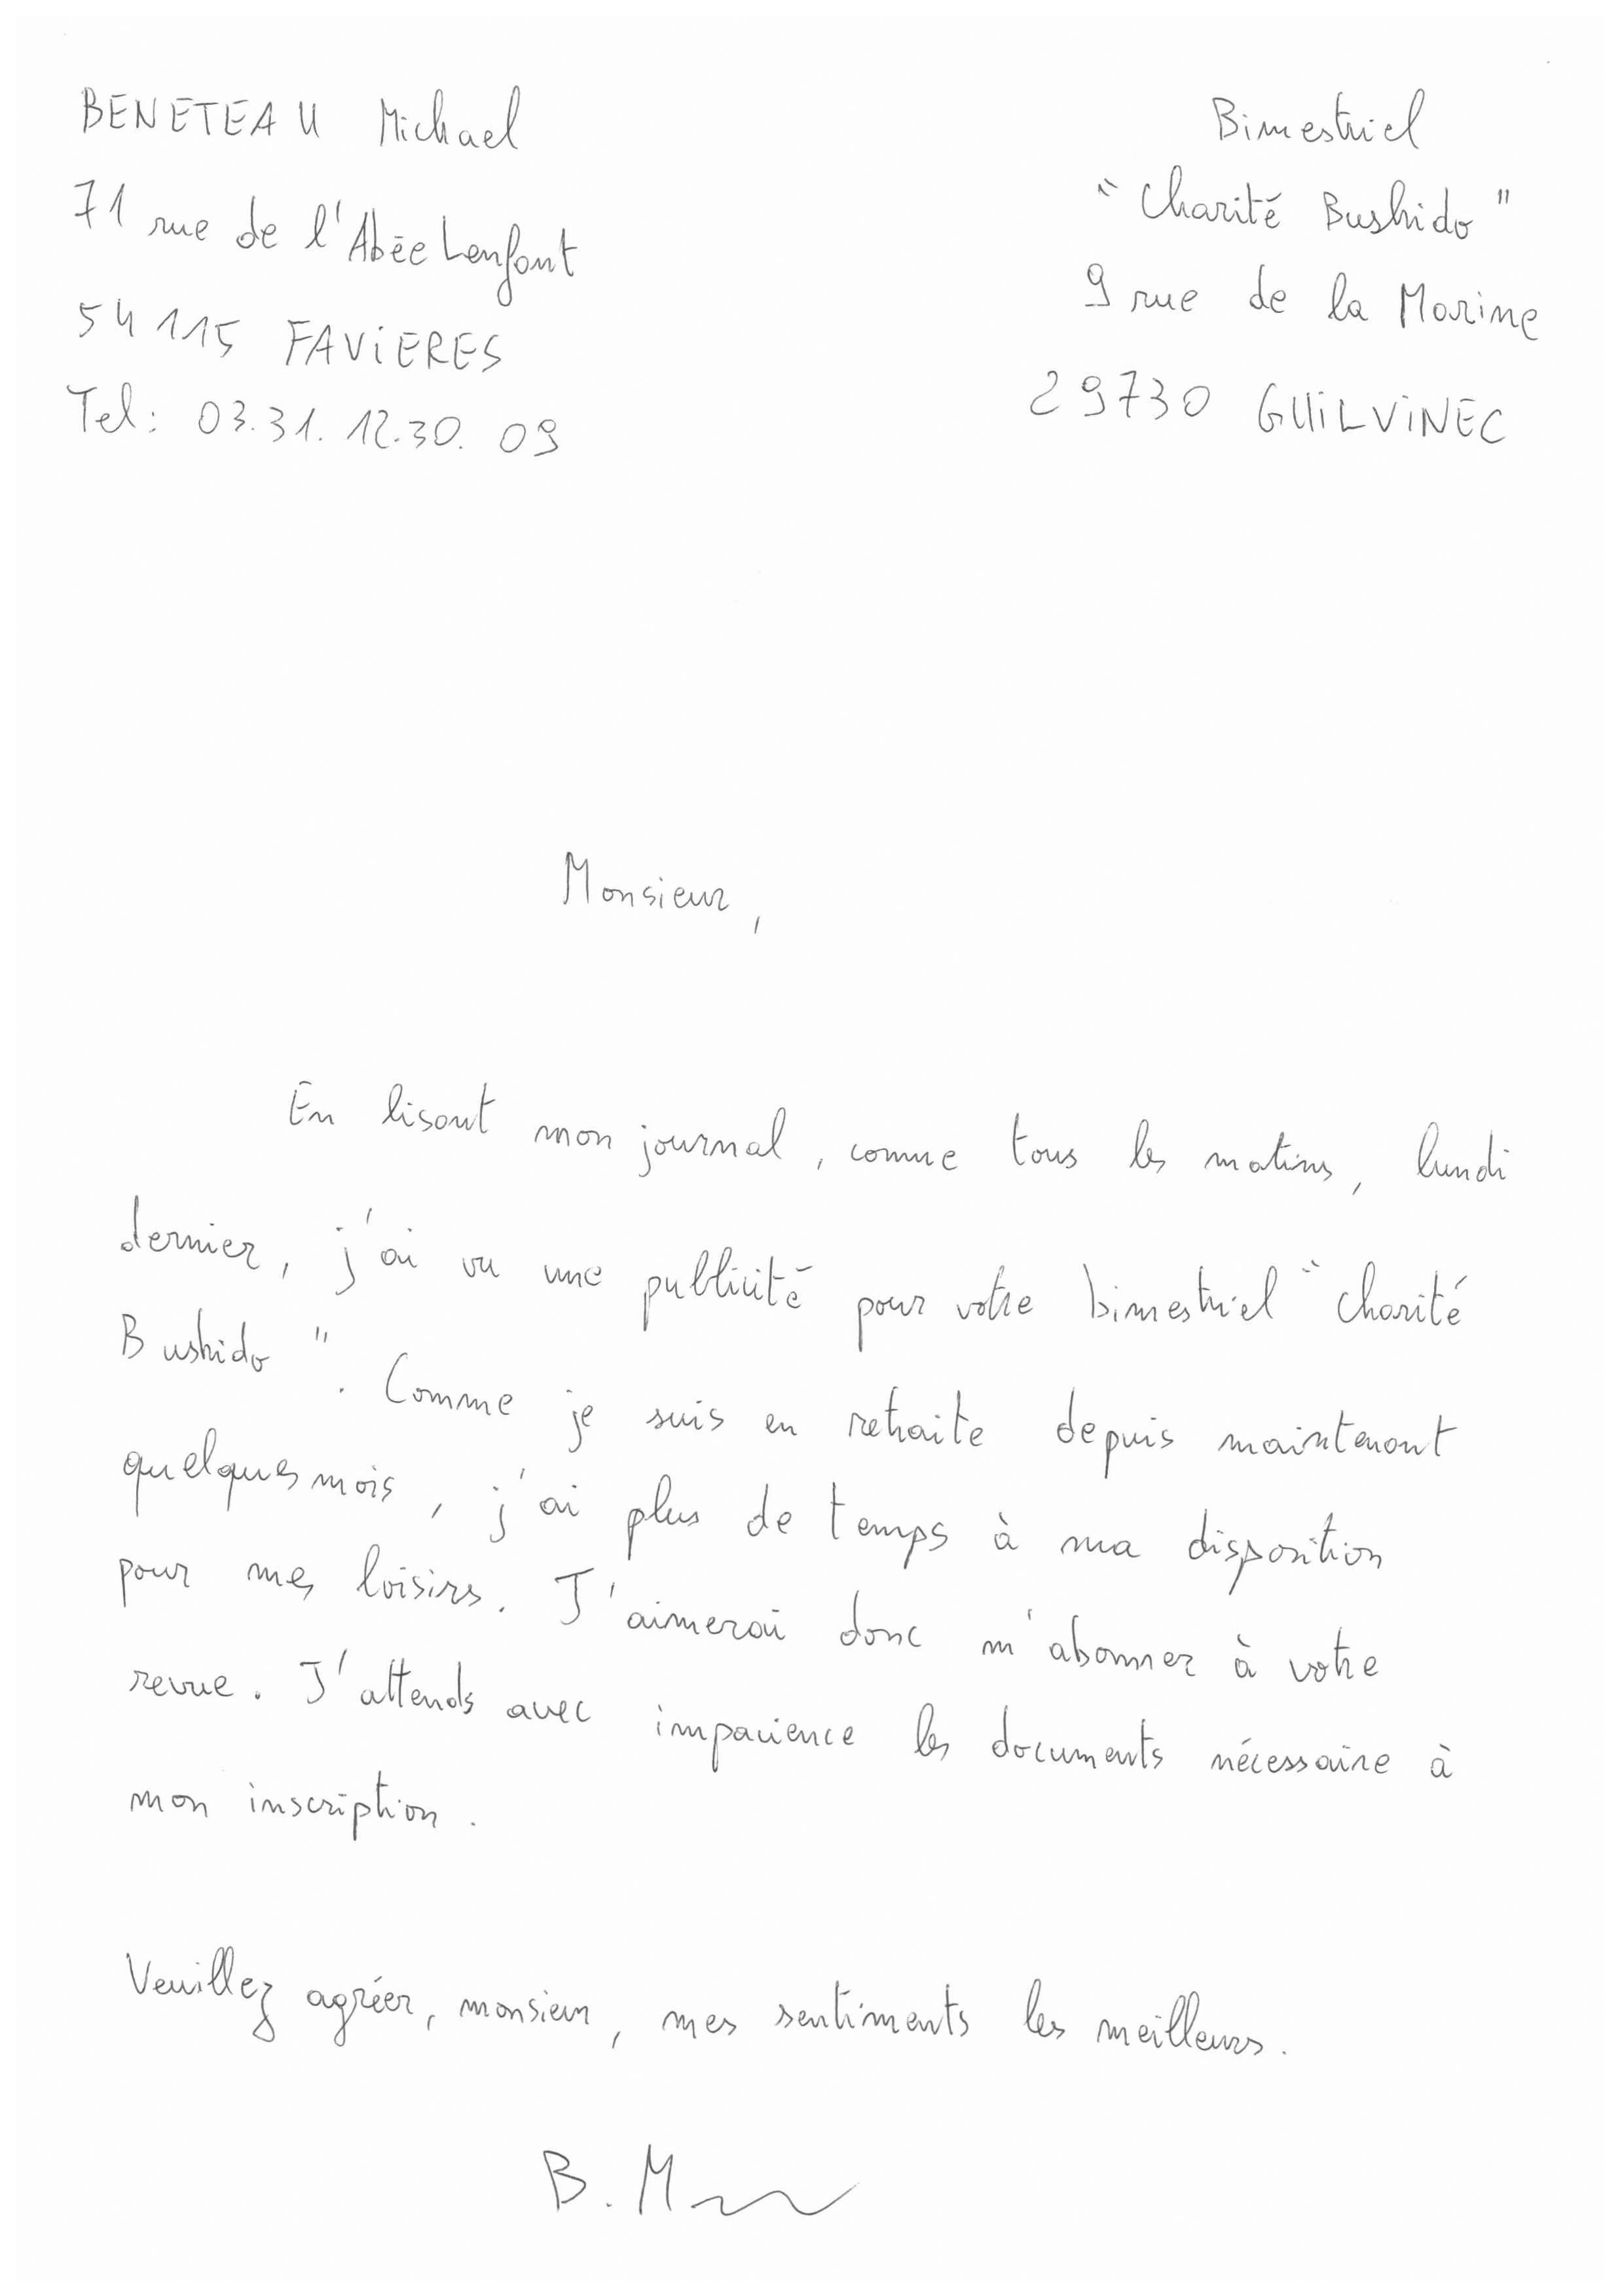 BENETEAU Michael
71 rue de l'Abée Lenfant
54115 FAVIERES
Tel: 03.31.12.30.09
Bimestriel
"Charité Bushido"
9 rue de la Marine
29730 GUILVINEC
Monsieur,
En lisant mon journal, comme tous les matins, lundi
dernier, j'ai vu une publicité pour votre bimestriel "charité
Bushido". Comme je suis en retraite depuis maintenant
quelques mois, j'ai plus de temps à ma disposition
pour mes loisirs. J'aimerai donc m'abonner à votre
revue. J'attends avec impacience les documents nécessaire à
mon inscription.
Veuillez agréer, monsieur, mes sentiments les meilleurs.
B.M